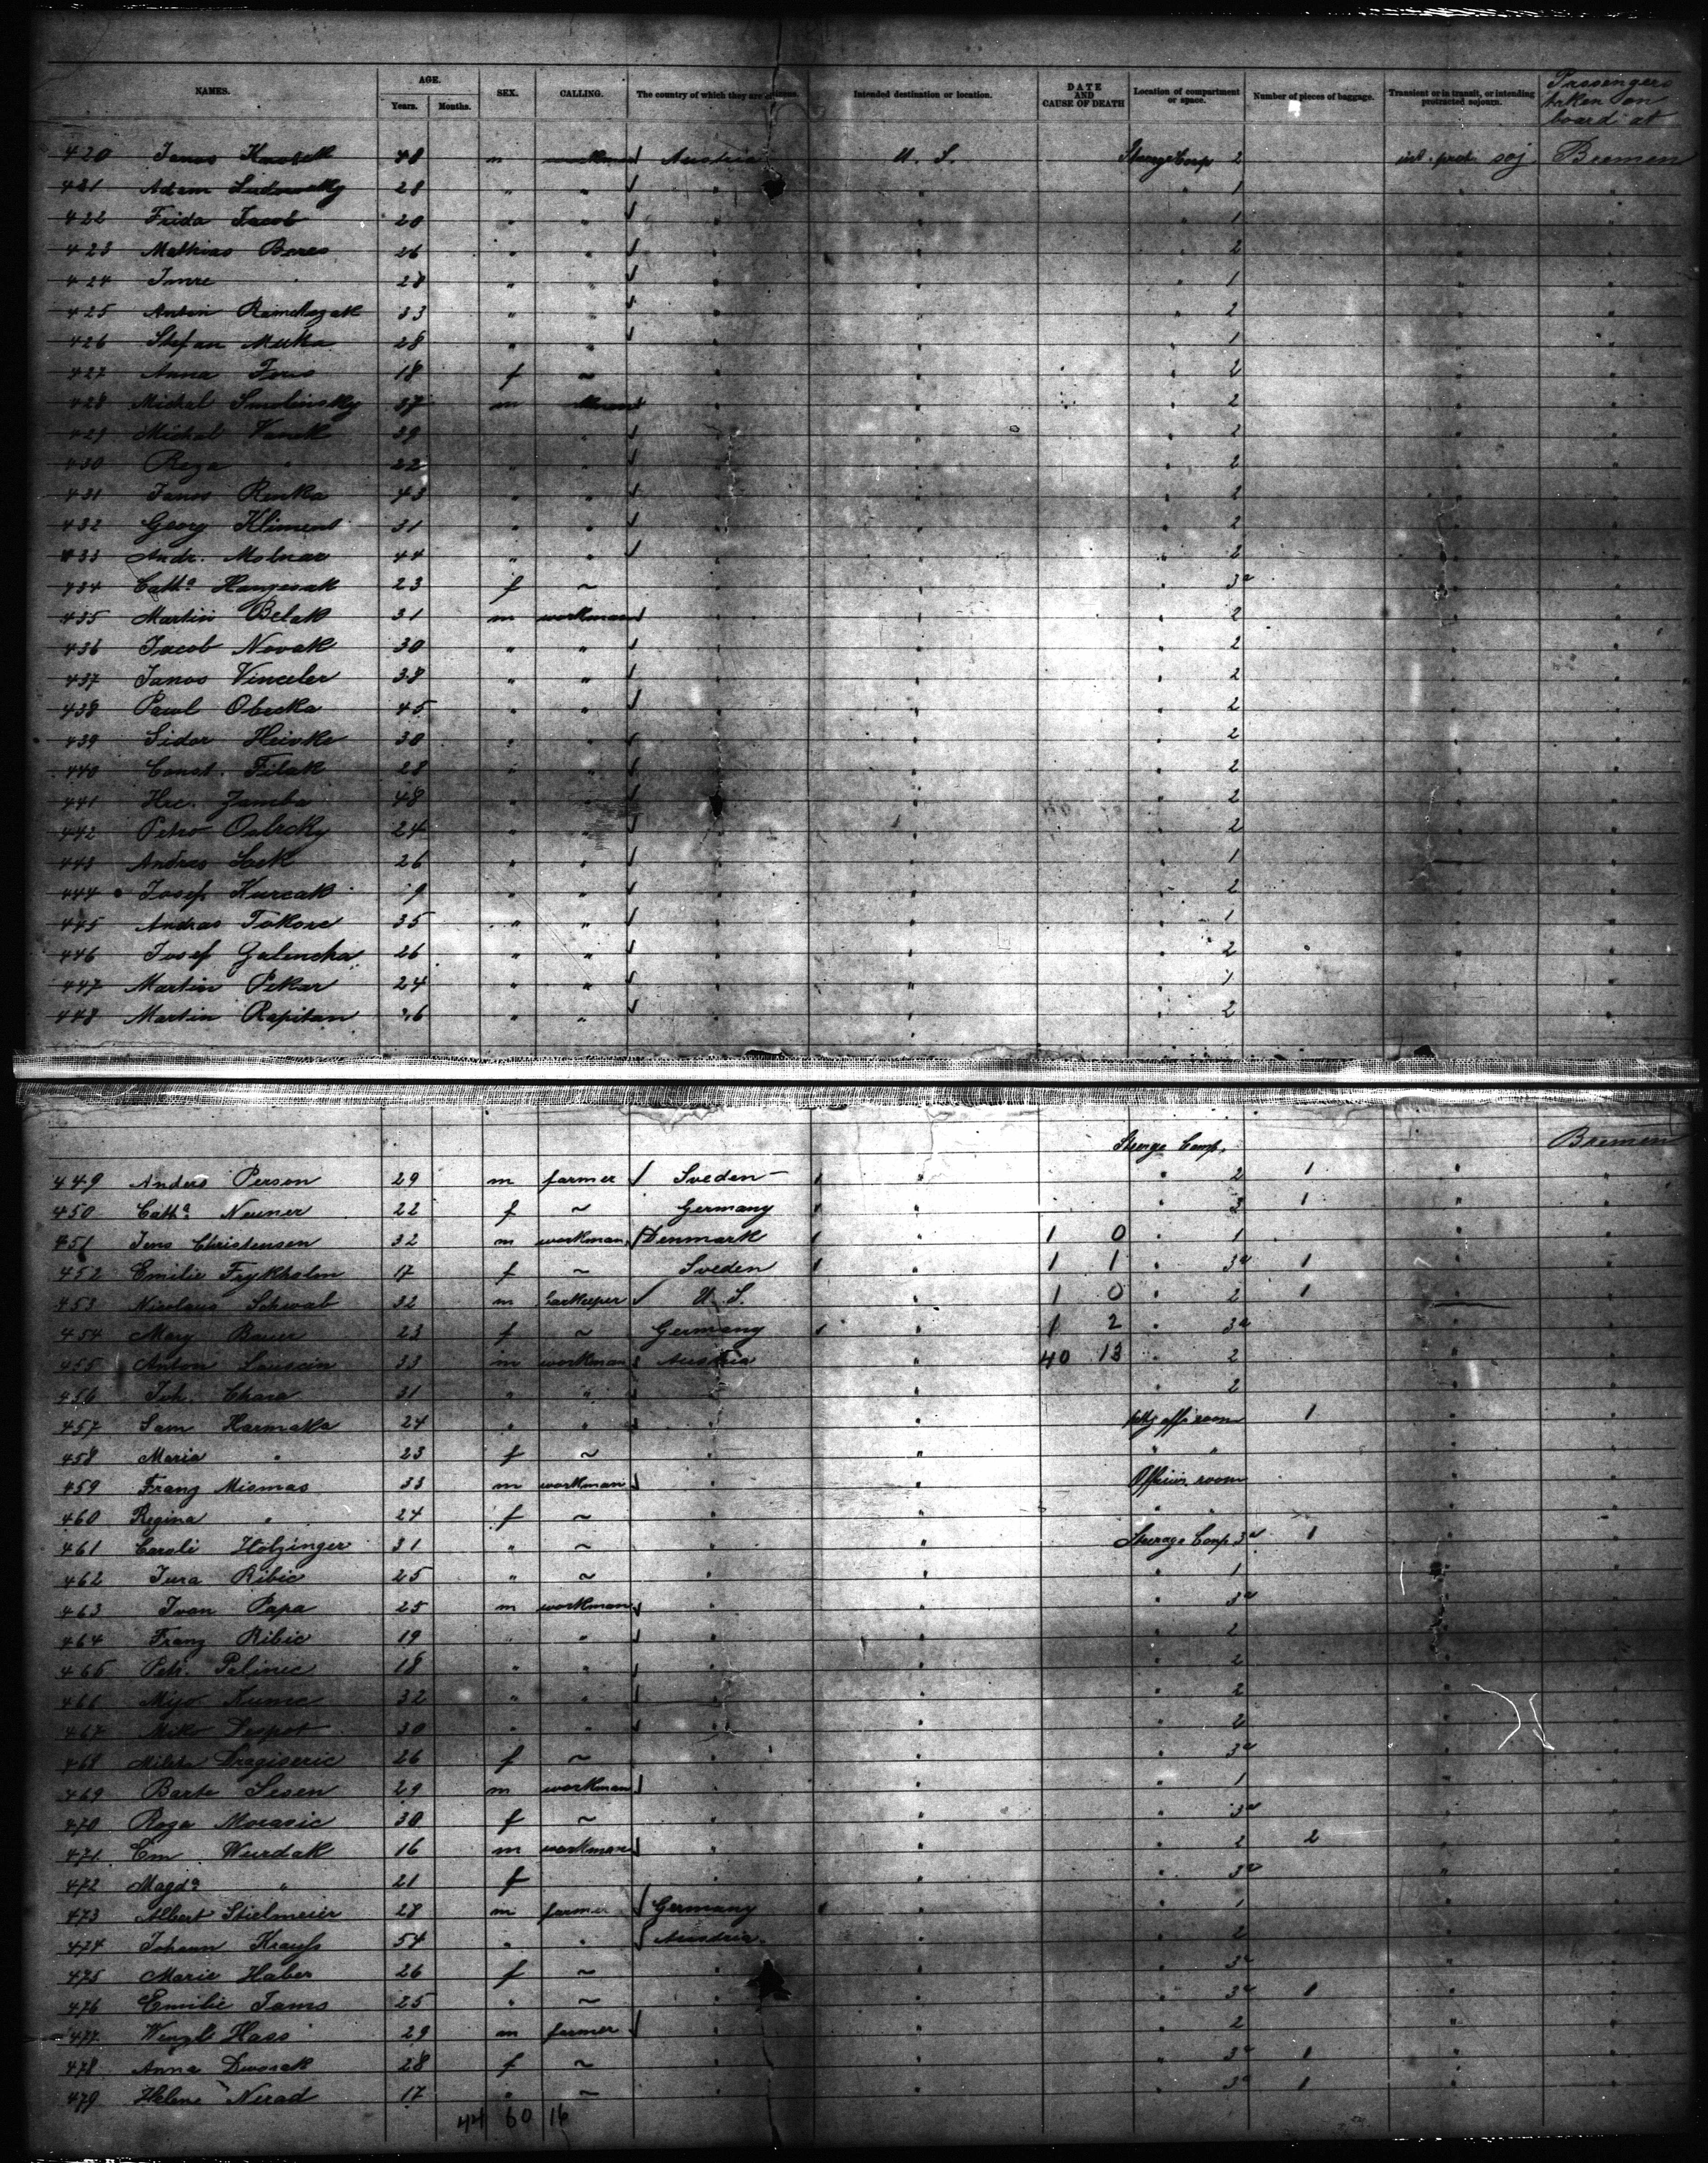 NAMES. AGE. SEX. CALLING. The country of which they are citizens. Intended destination or location. DATE AND CAUSE OF DEATH Location of compartment or space. Number of pieces of baggage. Transient or in transit, or intending protracted sojourn. Passengers taken on board at
Years. Months.
420 Janos 48 m workman Austria U. S. Steerage Comp 2 int. prot. soj. Bremen
421 Adam 28 " " " " " 1 " "
422 Frida Jacob 20 " " " " " 1 " "
423 Mathias Beres 26 " " " " " 2 " "
424 Imre " 28 " " " " " 1 " "
425 Antin 33 " " " " " 2 " "
426 Stefan Mitka 28 " " " " " 1 " "
427 Anna 18 f ~ " " " 2 " "
428 Michal Smolinsky 37 m " " " 2 " "
429 Michal Vanek 39 " " " " " 2 " "
430 Reza " 22 " " " " " 2 " "
431 Janos Renka 43 " " " " " 2 " "
432 Georg Kliment 31 " " " " " 2 " "
433 Andr. Molnar 44 " " " " " 2 " "
434 Catha 23 f ~ " " " 3a " "
435 Martin Belak 31 m workman " " " 2 " "
436 Jacob Novak 30 " " " " " 2 " "
437 Janos Vinceler 38 " " " " " 2 " "
438 Pawl Obecka 45 " " " " " 2 " "
439 Sidor 30 " " " " " 2 " "
440 Const. Filak 28 " " " " " 2 " "
441 Zamba 48 " " " " " 2 " "
442 Petro 24 " " " " " 2 " "
443 Andras 26 " " " " " 1 " "
444 Josef Kurcak 9 " " " " " 2 " "
445 Andras 35 " " " " " 1 " "
446 Josef Galincha 26 " " " " " 2 " "
447 Martin Pekar 24 " " " " " 1 " "
448 Martin Rapitan 26 " " " " " 2 " "
Steerage Comp. Bremen
449 Anders Person 29 m farmer Sveden " " 2 1 " "
450 Catha Neuner 22 f ~ Germany " " 3 1 " "
451 Jens Christensen 32 m workman Denmark " 1 0 " 1 " "
452 Emilie Frykholm 17 f ~ Sveden " 1 1 " 3a 1 " "
453 Nicolaus Schwab 32 m barkeeper U. S. " 1 0 " 2 1 " "
454 Mary Bauer 23 f ~ Germany " 1 2 " 3a " "
455 Anton 33 m workman Austria " 40 13 " 2 " "
456 Joh. Chara 31 " " " " " 2 " "
457 Sam Harmaka 24 " " " " petty offi room 1 " "
458 Maria " 23 f ~ " " " " " "
459 Franz Mismas 33 m workman " " Officier room " "
460 Regina " 24 f ~ " " " " " "
461 Caroli Holzinger 31 " ~ " " Steerage Comp. 3a 1 " "
462 Jura Ribic 25 " ~ " " " 1 " "
463 Ivan Papa 25 m workman " " " 3a " "
464 Franz Ribic 19 " " " " " 2 " "
465 Petr. Palinic 18 " " " " " 2 " "
466 Mijo Kunic 32 " " " " " 2 " "
467 Miko Despot 30 " " " " " 2 " "
468 Dragiseric 26 f ~ " " " 3a " "
469 Barte Sesen 29 m workman " " " 1 " "
470 Roza 30 f ~ " " " 3a " "
471 Em Wurdak 16 m workman " " " 2 2 " "
472 Magda " 21 f " " " 3a " "
473 Albert Stielmeier 28 m farmer Germany " " 1 " "
474 Johann Krauss 54 " " Austria " " 2 " "
475 Marie Haber 26 f ~ " " " 3a " "
476 Emilie Jams 25 " ~ " " " 3a 1 " "
477 Wenzl Hass 29 m farmer " " " 2 " "
478 Anna Dworak 28 f ~ " " " 3a 1 " "
479 Helene Nerad 17 " ~ " " " 3a 1 " "
44 60 16